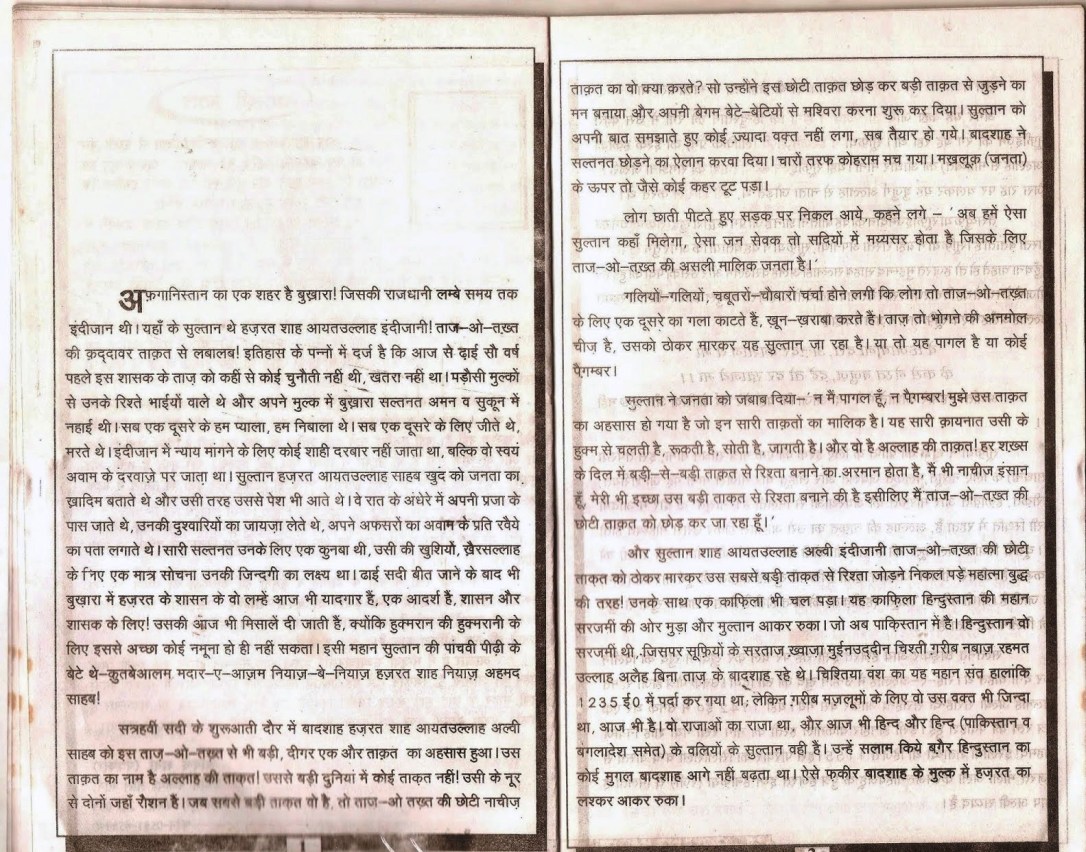 अफ़गानिस्तान का एक शहर है बुख़ारा! जिसकी राजधानी लम्बे समय तक
इंदीजान थी। यहाँ के सुल्तान थे हज़रत शाह आयतउल्लाह इंदीजानी! ताज–ओ–तख़्त
की क़द्दावर ताक़त से लबालब! इतिहास के पन्नों में दर्ज है कि आज से ढ़ाई सौ वर्ष
पहले इस शासक के ताज़ को कहीं से कोई चुनौती नहीं थी, खतरा नहीं था। पड़ौसी मुल्कों
से उनके रिश्ते भाईयों वाले थे और अपने मुल्क में बुख़ारा सल्तनत अमन व सुकून में
नहाई थी। सब एक दूसरे के हम प्याला, हम निबाला थे। सब एक दूसरे के लिए जीते थे,
मरते थे। इंदीजान में न्याय मांगने के लिए कोई शाही दरबार नहीं जाता था, बल्कि वो स्वयं
अवाम के दरवाज़े पर जाता था। सुल्तान हज़रत आयतउल्लाह साहब खुद को जनता का
ख़ादिम बताते थे और उसी तरह उससे पेश भी आते थे। वे रात के अंधेरे में अपनी प्रजा के
पास जाते थे, उनकी दुश्वारियों का जायज़ा लेते थे, अपने अफसरों का अवाम के प्रति रवैये
का पता लगाते थे। सारी सल्तनत उनके लिए एक कुनबा थी, उसी की खुशियों, ख़ैरसल्लाह
के लिए एक मात्र सोचना उनकी जिन्दगी का लक्ष्य था। ढाई सदी बीत जाने के बाद भी
बुख़ारा में हज़रत के शासन के वो लम्हें आज भी यादगार हैं, एक आदर्श हैं, शासन और
शासक के लिए! उसकी आज भी मिसालें दी जाती हैं, क्योंकि हुक्मरान की हुक्मरानी के
लिए इससे अच्छा कोई नमूना हो ही नहीं सकता। इसी महान सुल्तान की पांचवी पीढ़ी के
बेटे थे–क़ुतबेआलम मदार–ए–आज़म नियाज़–बे–नियाज़ हज़रत शाह नियाज़ अहमद
साहब!
सत्रहवीं सदी के शुरूआती दौर में बादशाह हज़रत शाह आयतउल्लाह अल्वी
साहब को इस ताज–ओ–तख़्त से भी बड़ी, दीगर एक और ताक़त का अहसास हुआ। उस
ताक़त का नाम है अल्लाह की ताक़त! उससे बड़ी दुनियां में कोई ताक़त नहीं! उसी के नूर
से दोनों जहाँ रौशन हैं। जब सबसे बड़ी ताक़त वो है, तो ताज–ओ तख़्त की छोटी नाचीज़
1
ताक़त का वो क्या करते? सो उन्होंने इस छोटी ताक़त छोड़ कर बड़ी ताक़त से जुड़ने का
मन बनाया और अपनी बेगम बेटे–बेटियों से मश्विरा करना शुरू कर दिया। सुल्तान को
अपनी बात समझाते हुए कोई ज्यादा वक़्त नहीं लगा, सब तैयार हो गये। बादशाह ने
सल्तनत छोड़ने का ऐलान करवा दिया। चारों तरफ कोहराम मच गया। मख़लूक़ (जनता)
के ऊपर तो जैसे कोई कहर टूट पड़ा।
लोग छाती पीटते हुए सड़क पर निकल आये, कहने लगे – 'अब हमें ऐसा
सुल्तान कहाँ मिलेगा, ऐसा जन सेवक तो सदियों में मय्यसर होता है जिसके लिए
ताज–ओ–तख़्त की असली मालिक जनता है।'
गलियों–गलियों, चबूतरों–चौबारों चर्चा होने लगी कि लोग तो ताज–ओ–तख़्त
के लिए एक दूसरे का गला काटते हैं, खून–ख़राबा करते हैं। ताज़ तो भोगने की अनमोल
चीज है, उसको ठोकर मारकर यह सुल्तान जा रहा है। या तो यह पागल है या कोई
पैग़म्बर।
सुल्तान ने जनता को जबाब दिया–'न मैं पागल हूँ, न पैग़म्बर! मुझे उस ताक़त
का अहसास हो गया है जो इन सारी ताक़तों का मालिक है। यह सारी क़ायनात उसी के
हुक्म से चलती है, रूकती है, सोती है, जागती है। और वो है अल्लाह की ताक़त! हर शख़्स
के दिल में बड़ी–से–बड़ी ताक़त से रिश्ता बनाने का अरमान होता है, मैं भी नाचीज इंसान
हूँ, मेरी भी इच्छा उस बड़ी ताक़त से रिश्ता बनाने की है इसीलिए मैं ताज–ओ–तख़्त की
छोटी ताक़त को छोड़ कर जा रहा हूँ।'
और सुल्तान शाह आयतउल्लाह अल्वी इंदीजानी ताज–ओ–तख़्त की छोटी
ताक़त को ठोकर मारकर उस सबसे बड़ी ताक़त से रिश्ता जोड़ने निकल पड़े महात्मा बुद्ध
की तरह! उनके साथ एक काफ़िला भी चल पड़ा। यह काफ़िला हिन्दुस्तान की महान
सरजमीं की ओर मुड़ा और मुल्तान आकर रुका। जो अब पाकिस्तान में है। हिन्दुस्तान वो
सरजमीं थी, जिसपर सूफ़ियों के सरताज ख़्वाजा मुईनउद्दीन चिश्ती ग़रीब नबाज़ रहमत
उल्लाह अलैह बिना ताज के बादशाह रहे थे। चिश्तिया वंश का यह महान संत हालांकि
1235 ई0 में पर्दा कर गया था; लेकिन ग़रीब मज़लूमों के लिए वो उस वक्त भी जिन्दा
था, आज भी है। वो राजाओं का राजा था, और आज भी हिन्द और हिन्द (पाकिस्तान व
बंगलादेश समेत) के वलियों के सुल्तान वही हैं। उन्हें सलाम किये बग़ैर हिन्दुस्तान का
कोई मुगल बादशाह आगे नहीं बढ़ता था। ऐसे फकीर बादशाह के मुल्क में हज़रत का
लश्कर आकर रुका।
2